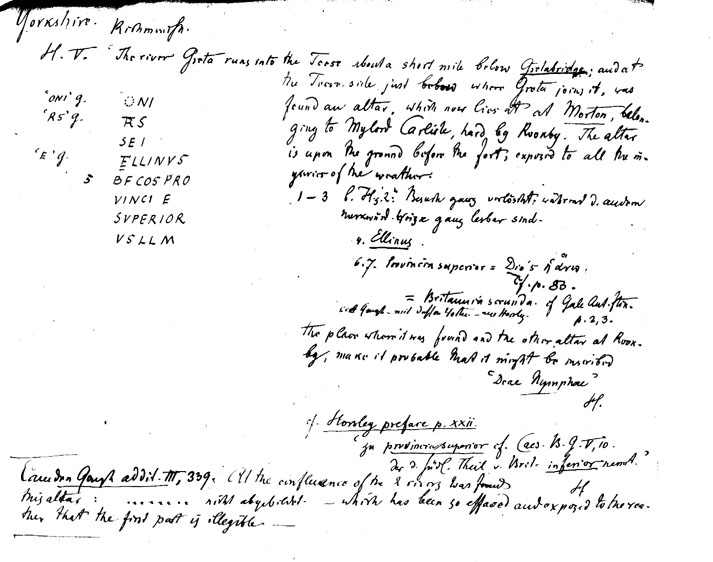 Yorkshire. Richmondsh.
H. V. "The river Greta runs into the Teese about a short mile below Gretabridge; and at
the Teese-side just below where Greta joins it, was
found an altar, which now lies at Morton, belon-
ging to Mylord Carlisle, hard by Rookby. The altar
is upon the ground before the fort, exposed to all the in-
juries of the weather.
'ONI' g. ONI
'RS' g. RS
SEI
'E' g. ELLINVS
5 BF COS PRO
VINCI E
SVPERIOR
VSLLM
1–3 ganz verlöscht, während d. andern
ganz lesbar sind.
4. Ellinus.
6.7. Provincia superior = Dio's ἡ ἄνω.
cf. p. 83.
= Britannia secunda. cf Gale Ant. Itin.
p. 2,3.
the place where it was found and the other altar at Rook-
by, make it probable that it might be inscribed
"Deae Nymphae"
H.
cf. Horsley preface p. XXII
"zu provincia superior cf. Caes. B. G. V, 10.
der d. südl. Theil v. Brit. inferior nennt."
H
Camden Gough addit. III, 339. At the confluence of the 2 rivers was found
this altar: ........ nicht abgebildet. — which has been so effaced and exposed to the wea-
ther that the first part is illegible. —